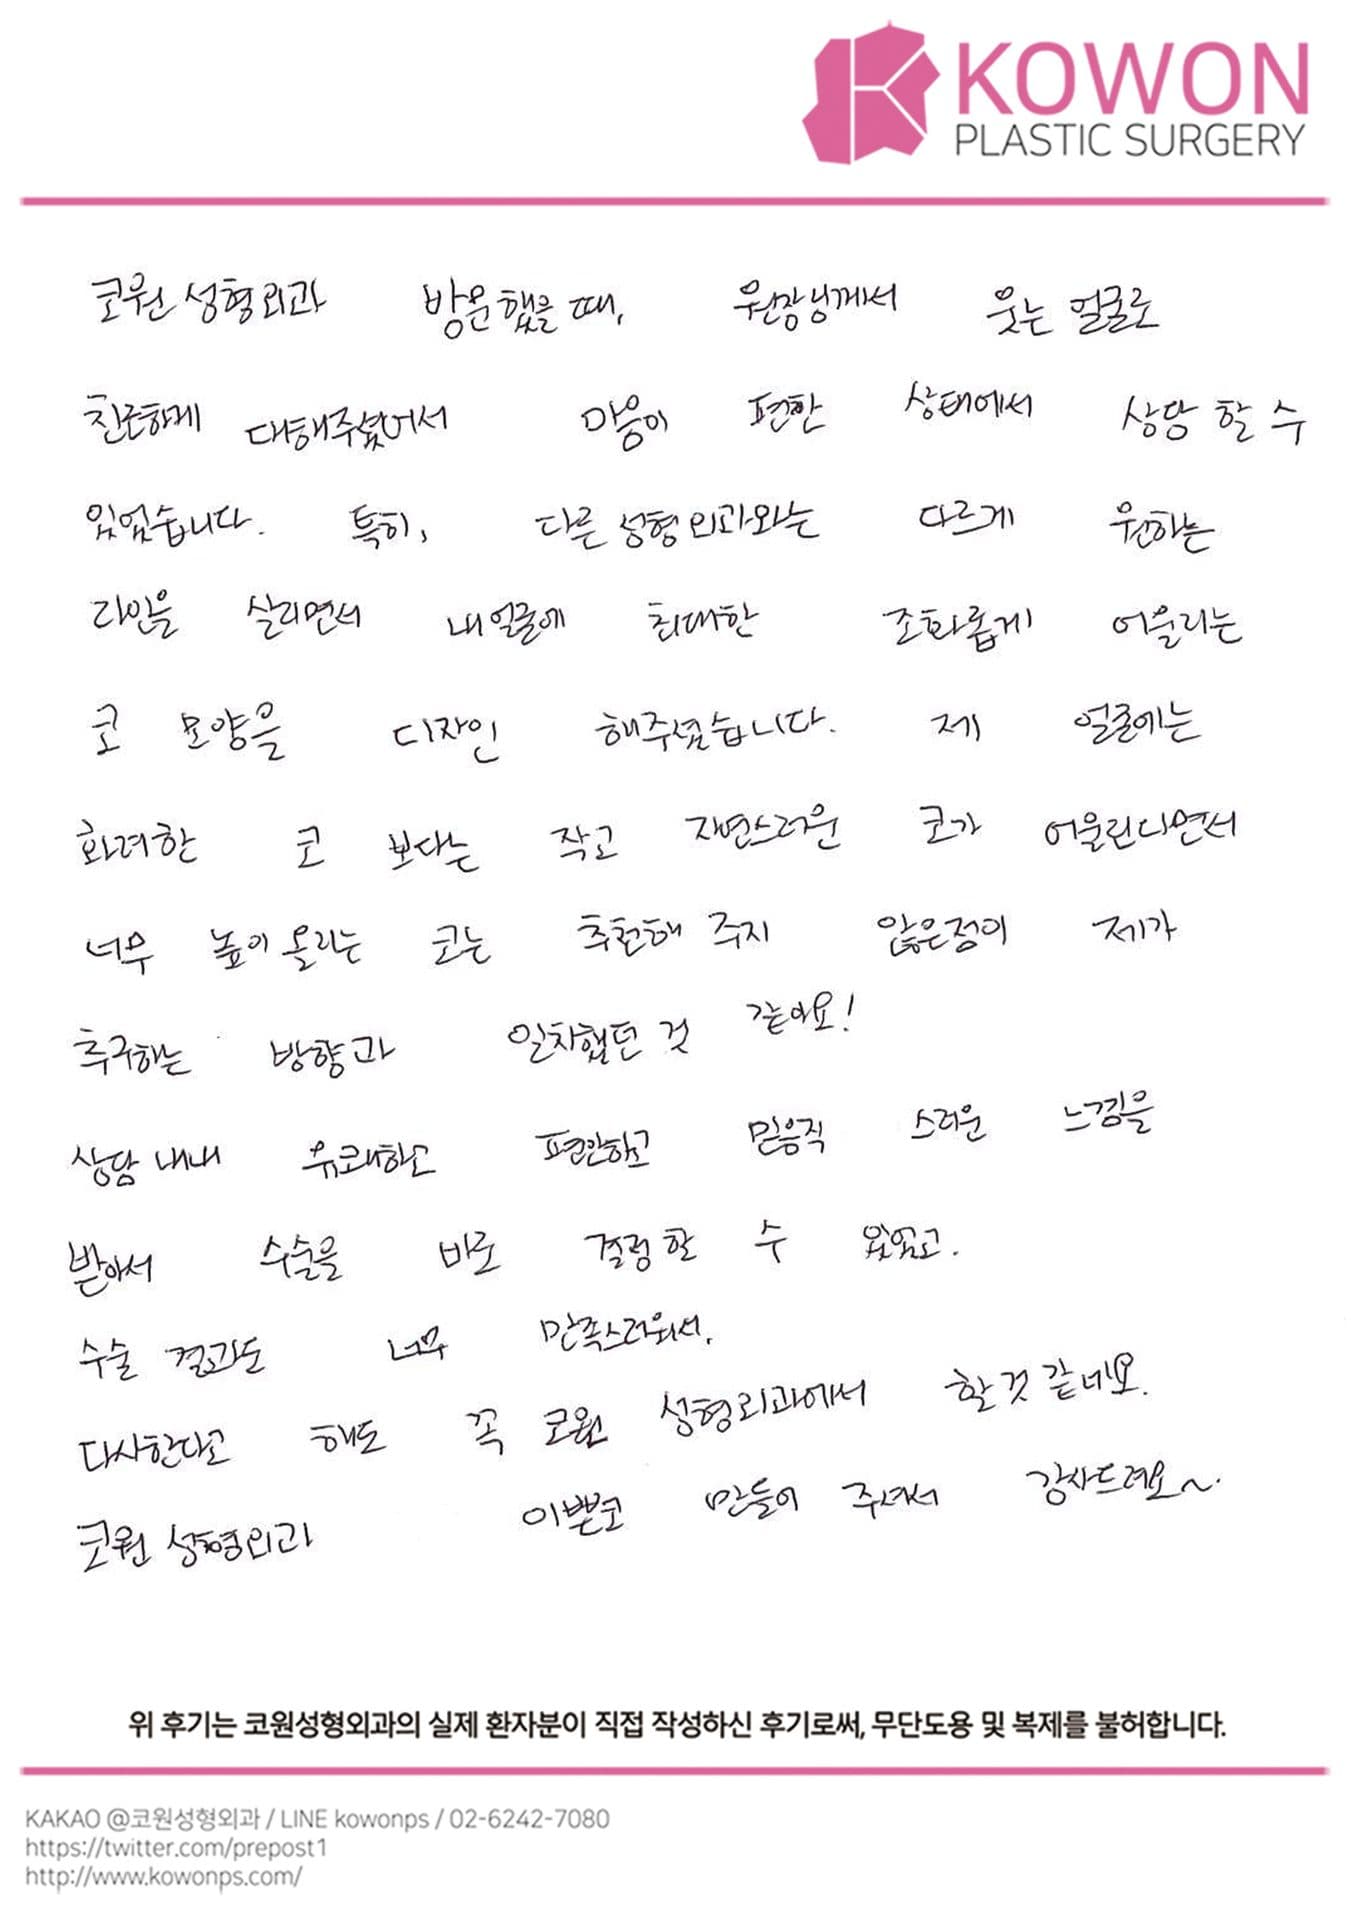 KOWON
PLASTIC SURGERY
코원 성형외과 방문했을 때, 원장님께서 웃는 얼굴로
친근하게 대해주셨어서 마음이 편한 상태에서 상담 할 수
있었습니다. 특히, 다른 성형외과와는 다르게 원하는
라인을 살리면서 내 얼굴에 최대한 조화롭게 어울리는
코 모양을 디자인 해주셨습니다. 제 얼굴에는
화려한 코 보다는 작고 자연스러운 코가 어울린다면서
너무 높이 올리는 코는 추천해 주지 않은점이 제가
추구하는 방향과 일치했던 것 같아요!
상담 내내 유쾌하고 편안하고 믿음직 스러운 느낌을
받아서 수술을 바로 결정 할 수 있었고.
수술 결과도 너무 만족스러워서,
다시한다고 해도 꼭 코원 성형외과에서 할 것 같네요.
코원 성형외과 이쁜코 만들어 주셔서 감사드려요~.
위 후기는 코원성형외과의 실제 환자분이 직접 작성하신 후기로써, 무단도용 및 복제를 불허합니다.
KAKAO @코원성형외과 / LINE kowonps / 02-6242-7080
https://twitter.com/prepost1
http://www.kowonps.com/